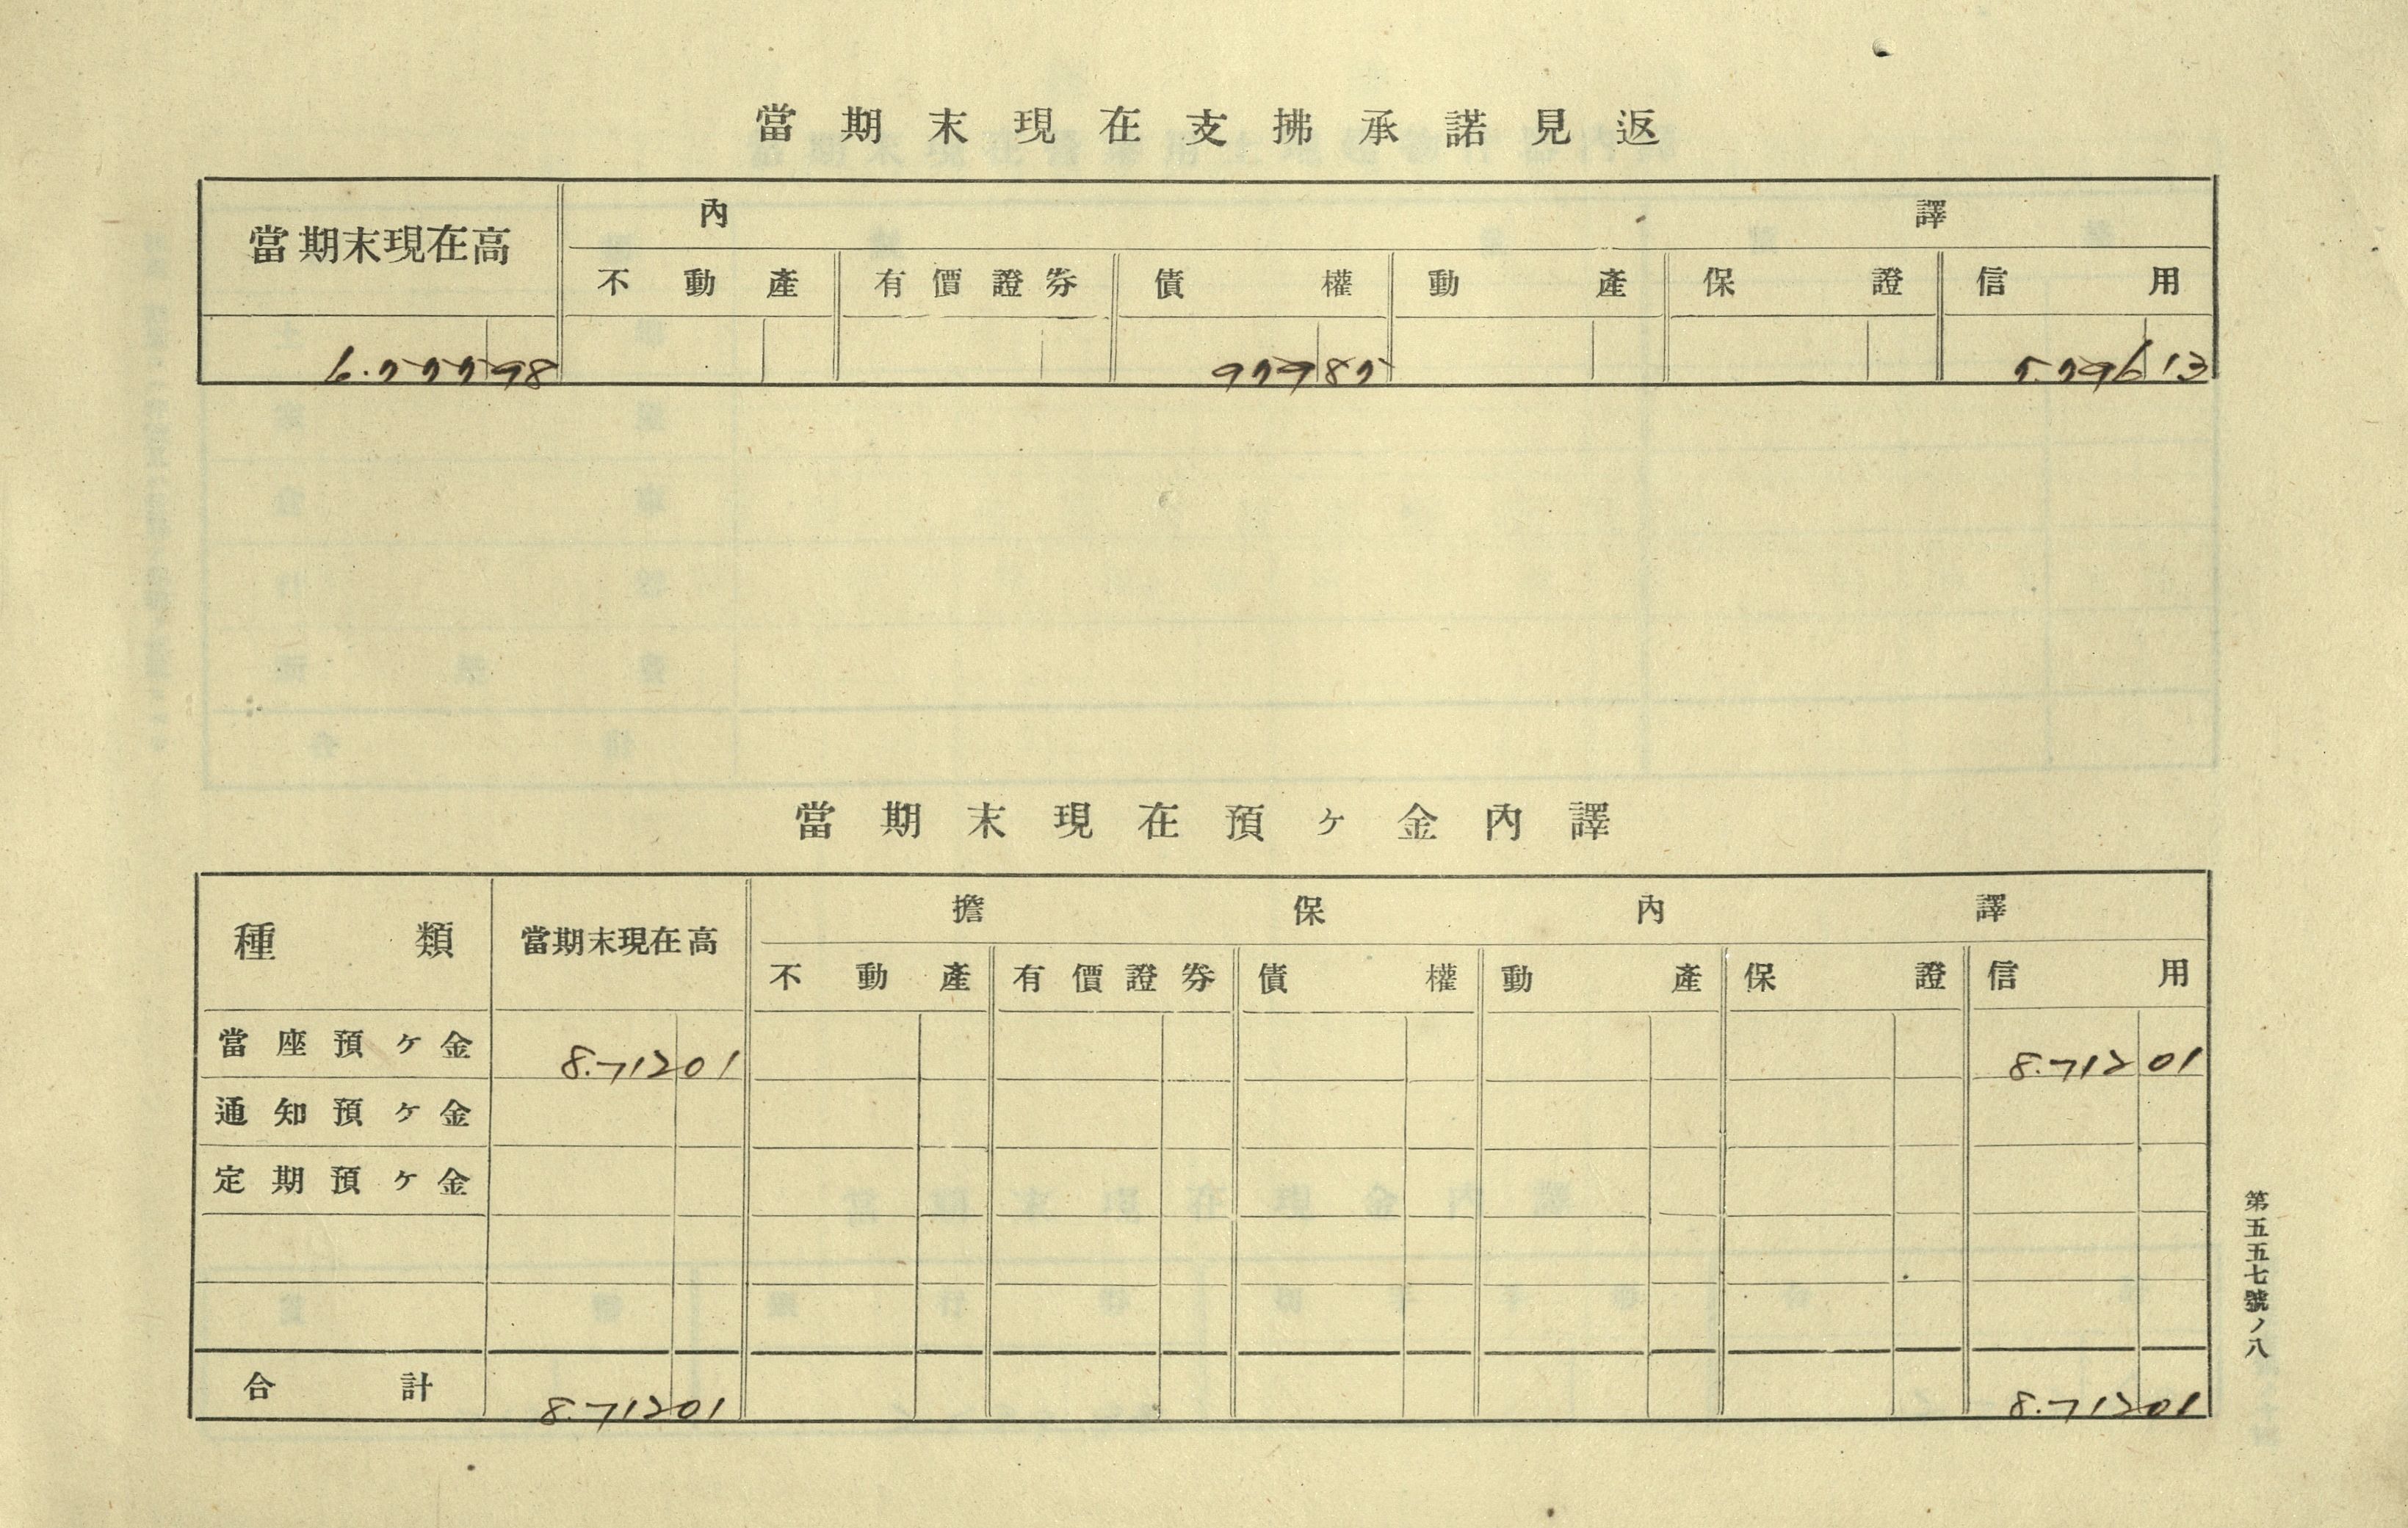 當期末現在支拂承諾見返
當期末現在高 內譯
不動產 有價證券 債權 動產 保證 信用
6.555 98 959 85 5.596 13
當期末現在預ヶ金內譯
種類 當期末現在高 擔保內譯
不動產 有價證券 債權 動產 保證 信用
當座預ヶ金 8.712 01 8.712 01
通知預ヶ金
定期預ヶ金
合計 8.712 01 8.712 01
第五五七號ノ八